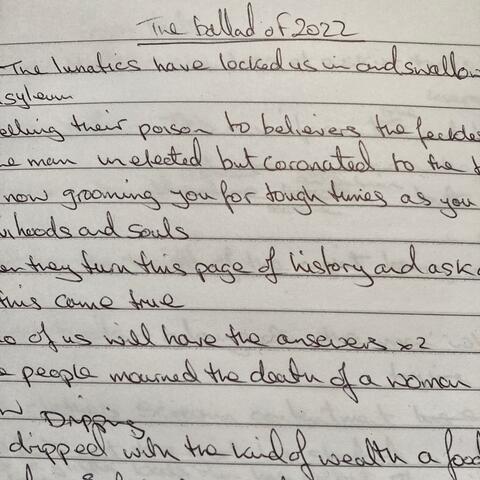 The ballad of 2022
The lunatics have locked us in and swallow
sylum
elling their poison to believers the feckles
e man unelected but coronated to the t
now grooming you for tough times as you
heads and souls
en they turn this page of history and ask
this come true
o of us will have the answers x2
e people mourned the death of a woman
w Dripping
dripped with the kind of wealth a food